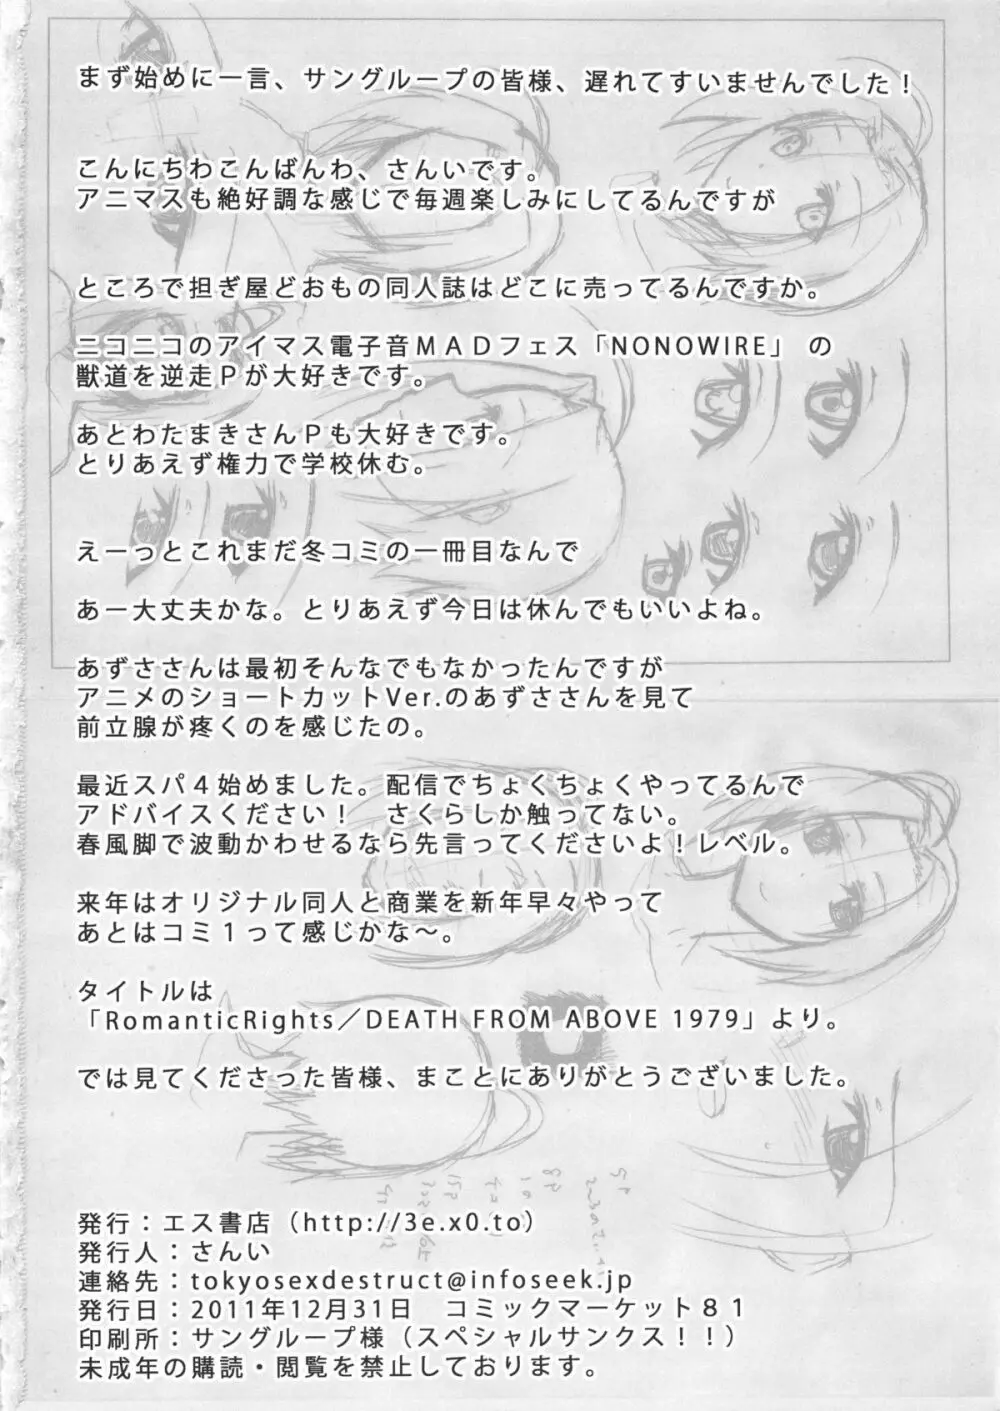 まず始めに一言、サングループの皆様、遅れてすいませんでした！
こんにちわこんばんわ、さんいです。
アニマスも絶好調な感じで毎週楽しみにしてるんですが
ところで担ぎ屋どおもの同人誌はどこに売ってるんですか。
ニコニコのアイマス電子音ＭＡＤフェス「NONOWIRE」 の
獣道を逆走Ｐが大好きです。
あとわたまきさんＰも大好きです。
とりあえず権力で学校休む。
えーっとこれまだ冬コミの一冊目なんで
あー大丈夫かな。とりあえず今日は休んでもいいよね。
あずささんは最初そんなでもなかったんですが
アニメのショートカットVer.のあずささんを見て
前立腺が疼くのを感じたの。
最近スパ４始めました。配信でちょくちょくやってるんで
アドバイスください！　さくらしか触ってない。
春風脚で波動かわせるなら先言ってくださいよ！レベル。
来年はオリジナル同人と商業を新年早々やって
あとはコミ１って感じかな〜。
タイトルは
「RomanticRights／DEATH FROM ABOVE 1979」より。
では見てくださった皆様、まことにありがとうございました。
発行：エス書店（http://3e.x0.to）
発行人：さんい
連絡先：tokyosexdestruct@infoseek.jp
発行日：2011年12月31日　コミックマーケット８１
印刷所：サングループ様（スペシャルサンクス！！）
未成年の購読・閲覧を禁止しております。